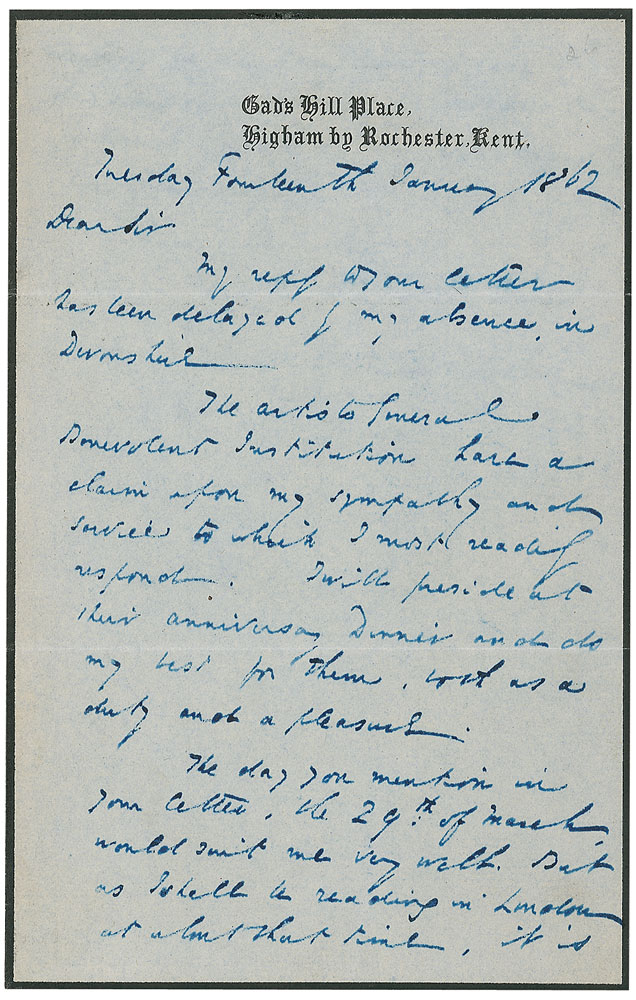 Gad's Hill Place,
Higham by Rochester, Kent.
Tuesday Fourteenth January 1862
Dear Sir
My reply to your letter
has been delayed by my absence in
Devonshire
The artists General
Benevolent Institution have a
claim upon my sympathy and
service to which I most readily
respond. I will preside at
their anniversary Dinner and do
my best for them, both as a
duty and a pleasure.
The day you mention in
your letter, the 29th. of March,
would suit me very well. But
as I shall be reading in London
at about that time, it is